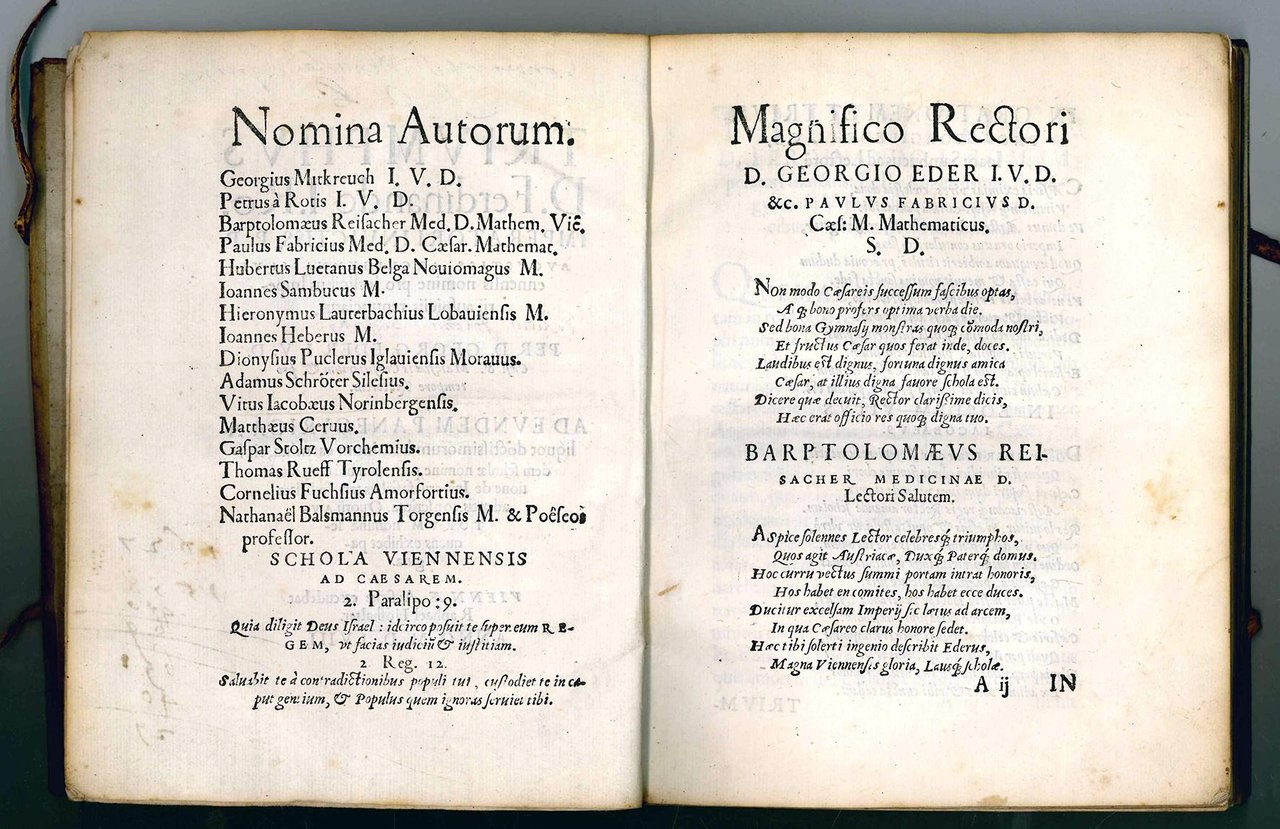 Nomina Autorum.
Georgius Mitkreuch I. V. D.
Petrus à Rotis I. V. D.
Bartolomæus Reisacher Med. D. Mathem. Viẽ.
Paulus Fabricius Med. D. Cæsar. Mathemat.
Hubertus Luetanus Belga Nouiomagus M.
Ioannes Sambucus M.
Hieronymus Lauterbachius Lobauiensis M.
Ioannes Heberus M.
Dionysius Puclerus Iglauiensis Morauus.
Adamus Schröter Silesius.
Vitus Iacobæus Norinbergensis.
Matthæus Ceruus.
Gaspar Stoltz Vorchemius.
Thomas Rueff Tyrolensis.
Cornelius Fuchsius Amorfortius.
Nathanaël Balsmannus Torgensis M. & Poëseos
professor.
SCHOLA VIENNENSIS
AD CAESAREM.
2. Paralipo: 9.
Quia diligit Deus Israel: idcirco posuit te super eum RE-
GEM, vt facias iudiciũ & iustitiam.
2 Reg. 12.
Saluabit te à contradictionibus populi tui, custodiet te in ca-
put gentium, & Populus quem ignoras seruiet tibi.
Magnifico Rectori
D. GEORGIO EDER I. V. D.
&c. PAVLVS FABRICIVS D.
Cæs: M. Mathematicus.
S. D.
Non modo Cæsareis successum fascibus optas,
A qꝫ bono profers optima verba die.
Sed bona Gymnasij monstras quoqꝫ cõmoda nostri,
Et fructus Cæsar quos ferat inde, doces.
Laudibus est dignus, fortuna dignus amica
Cæsar, at illius digna fauore schola est.
Dicere quæ decuit, Rector clarissime dicis,
Hæc erat officio res quoqꝫ digna tuo.
BARPTOLOMÆVS REI-
SACHER MEDICINAE D.
Lectori Salutem.
Aspice solennes Lector celebresqꝫ triumphos,
Quos agit Austriacæ, Duxqꝫ Paterqꝫ domus.
Hoc curru vectus summi portam intrat honoris,
Hos habet en comites, hos habet ecce duces.
Ducitur excelsam Imperij sic lætus ad arcem,
In qua Cæsareo clarus honore sedet.
Hæc tibi solerti ingenio describit Ederus,
Magna Viennensis gloria, Lausqꝫ scholæ.
A ij IN